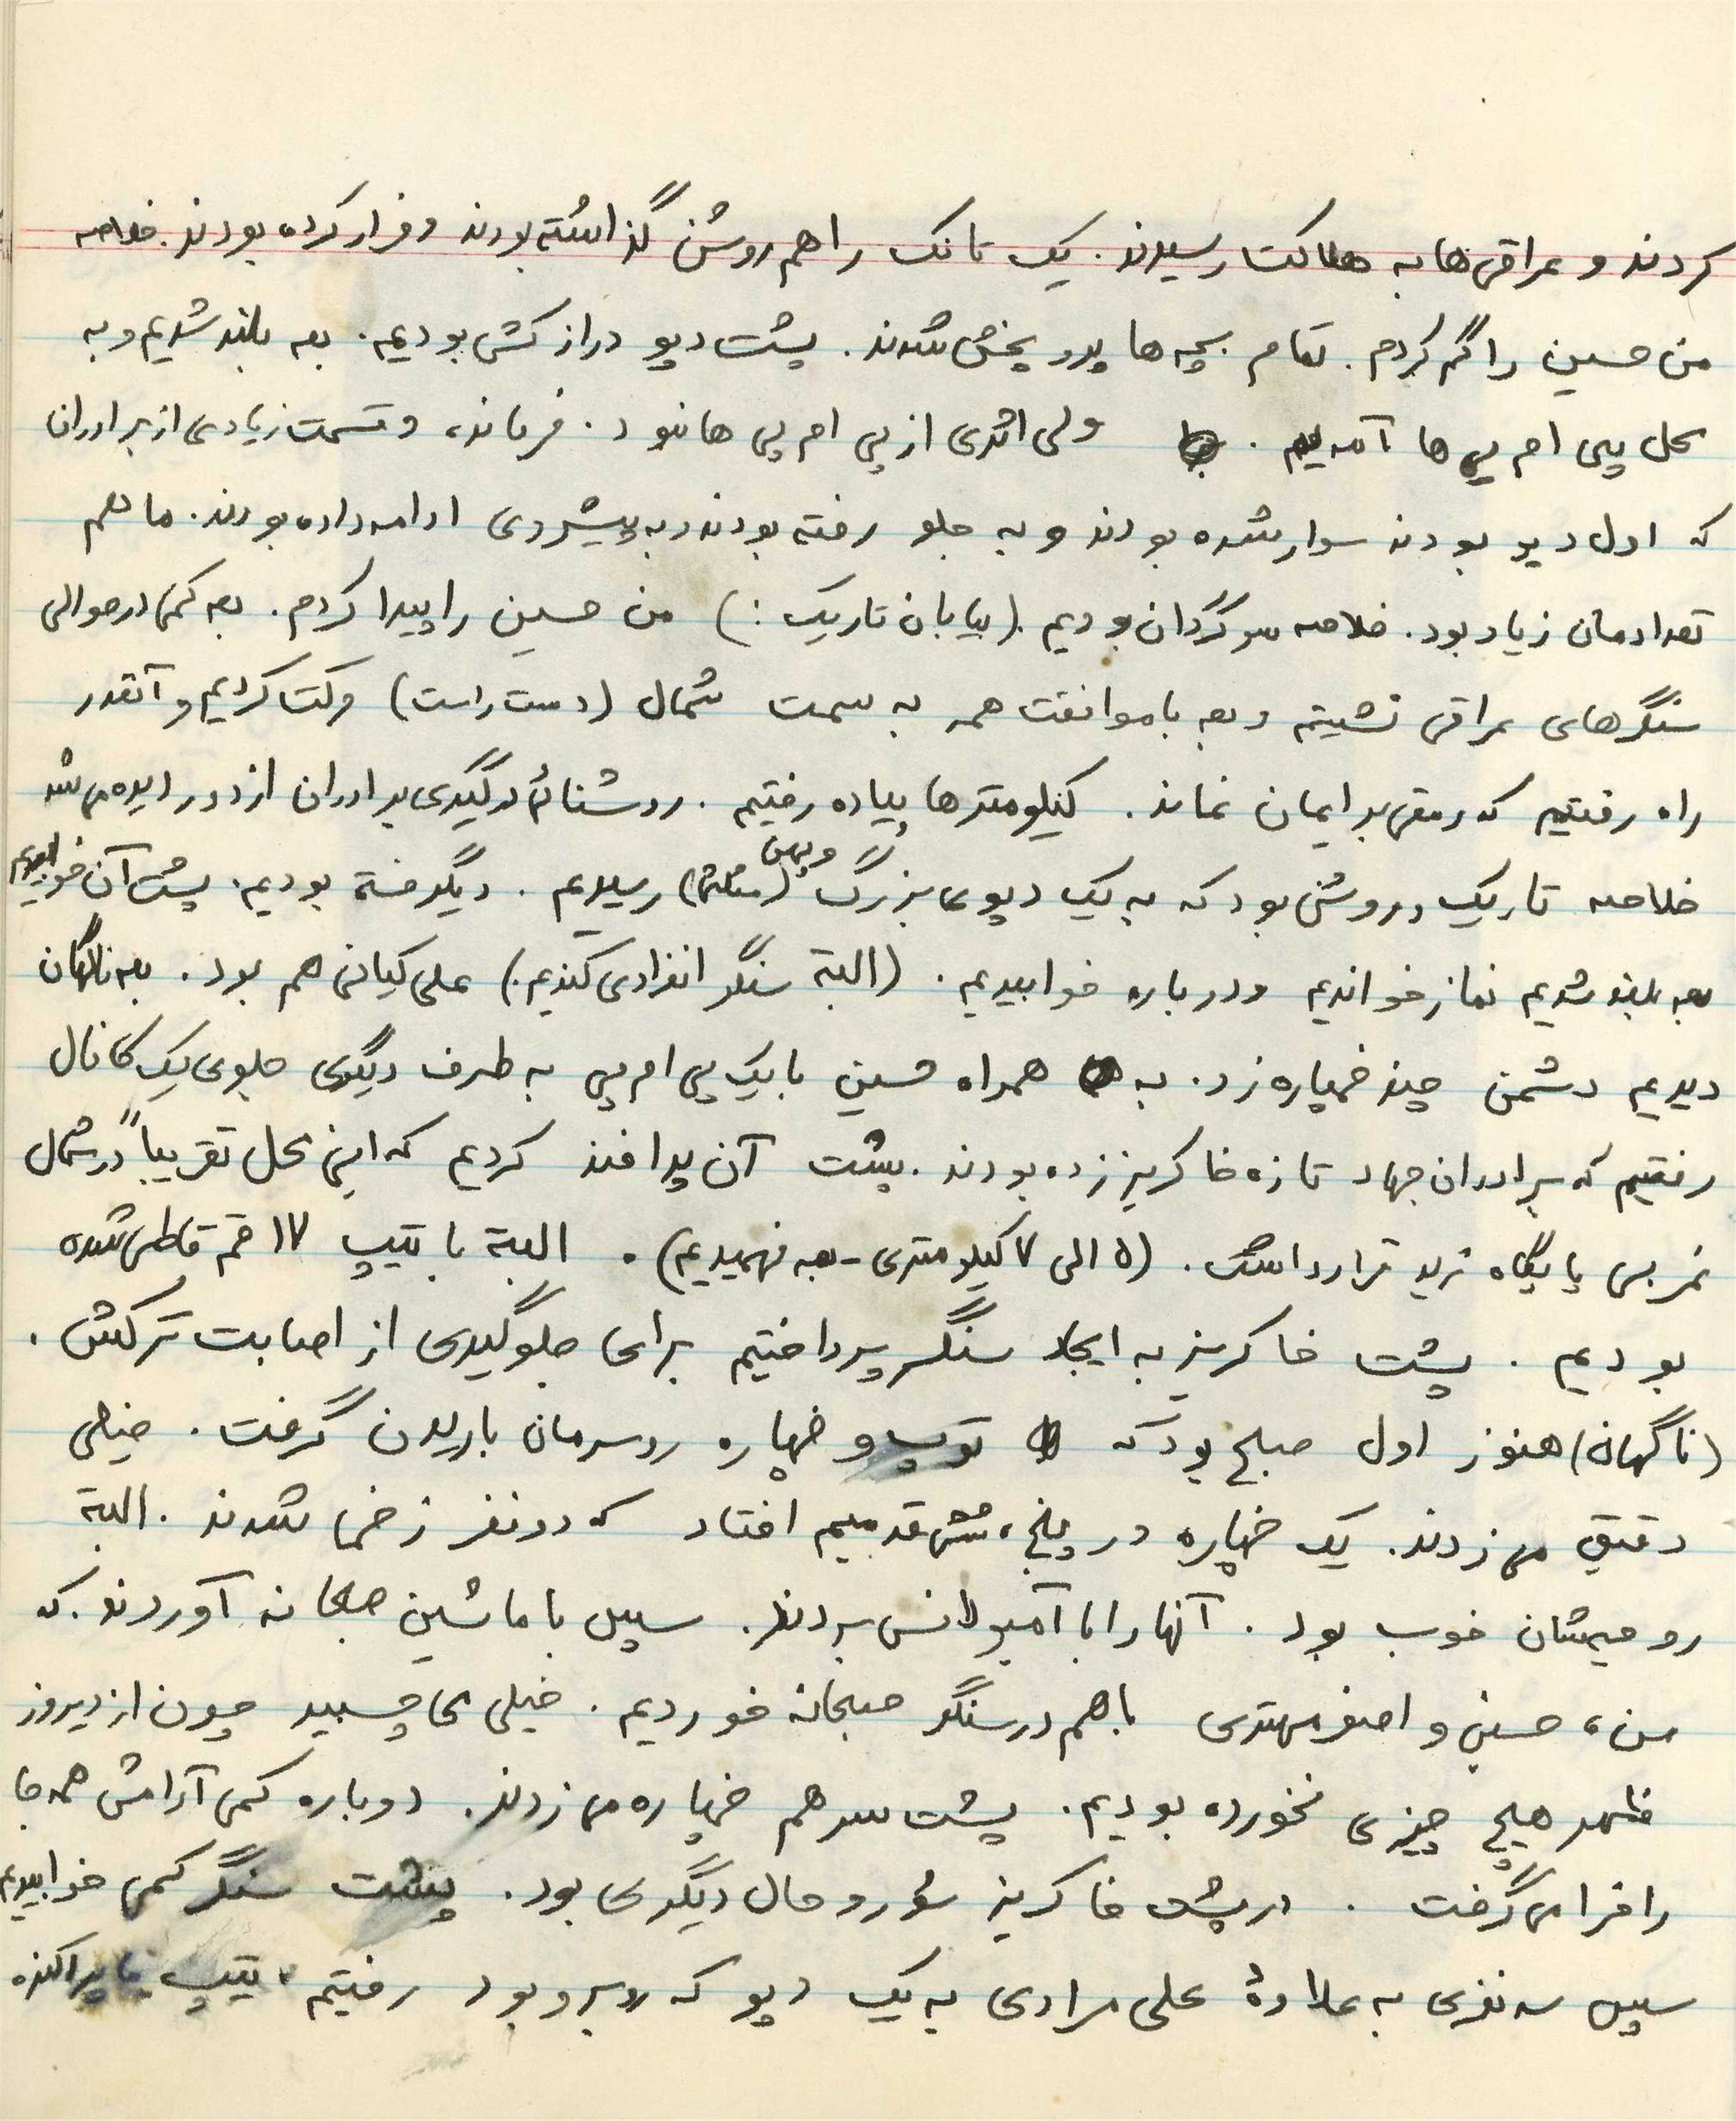 کردند و عراقی‌ها به هلاکت رسیدند. یک تانک را هم روشن گذاشته بودند و فرار کرده بودند. خلاصه
من حسین را گم کردم. تمام بچه‌ها پرو پخش شدند. پشت دپو دراز کش بودیم. بعد بلند شدیم و به
محل پی ام پی ها آمدیم. ولی اثری از پی ام پی ها نبود. فرمانده و قسمت زیادی از برادران
که اول دپو بودند سوار شده بودند و به جلو رفته بودند و به پیشروی ادامه داده بودند. ما هم
تعدادمان زیاد بود. خلاصه سرگردان بودیم. (بیابان تاریک:) من حسین را پیدا کردم. بعد کمی در حوالی
سنگرهای عراقی نشستیم و بعد با موافقت همه به سمت شمال (دست راست) حرکت کردیم و آنقدر
راه رفتیم که رمقی برایمان نماند. کیلومترها پیاده رفتیم. روشنائی درگیری برادران از دور دیده می‌شد
خلاصه تاریک و روشن بود که به یک دپوی بزرگ و پهن (مثلثی) رسیدیم. دیگر خسته بودیم. پشت آن خوابیدیم
بعد بلند شدیم نماز خواندیم و دوباره خوابیدیم. (البته سنگر انفرادی کندیم.) علی کیانی هم بود. بعد ناگهان
دیدیم دشمن چند خمپاره زد. به همراه حسین با یک پی ام پی به طرف دیگری جلوی یک کانال
رفتیم که برادران جهاد تازه خاکریز زده بودند. پشت آن پدافند کردیم که این محل تقریباً در شمال
غربی پایگاه زید قرار داشت. (۵ الی ۷ کیلومتری - بعد فهمیدیم). البته با تیپ ۱۷ قم قاطی شده
بودیم. پشت خاکریز به ایجاد سنگر پرداختیم برای جلوگیری از اصابت ترکش.
(ناگهان) هنوز اول صبح بود که توپ و خمپاره رو سرمان باریدن گرفت. خیلی
دقیق می‌زدند. یک خمپاره در پنج، شش قدمیم افتاد که دو نفر زخمی شدند. البته
روحیه‌شان خوب بود. آنها را با آمبولانس بردند. سپس با ماشین صبحانه آوردند. که
من، حسین و اصغر مهتری با هم در سنگر صبحانه خوردیم. خیلی می‌چسبید چون از دیروز
ظهر هیچ چیزی نخورده بودیم. پشت سر هم خمپاره می‌زدند. دوباره کمی آرامش همه جا
را فرا می‌گرفت. در پشت خاکریز شور و حال دیگری بود. پشت سنگر کمی خوابیدیم
سپس سه نفری به علاوهٔ علی مرادی به یک دپو که روبرو بود رفتیم، تیپ ما پراکنده